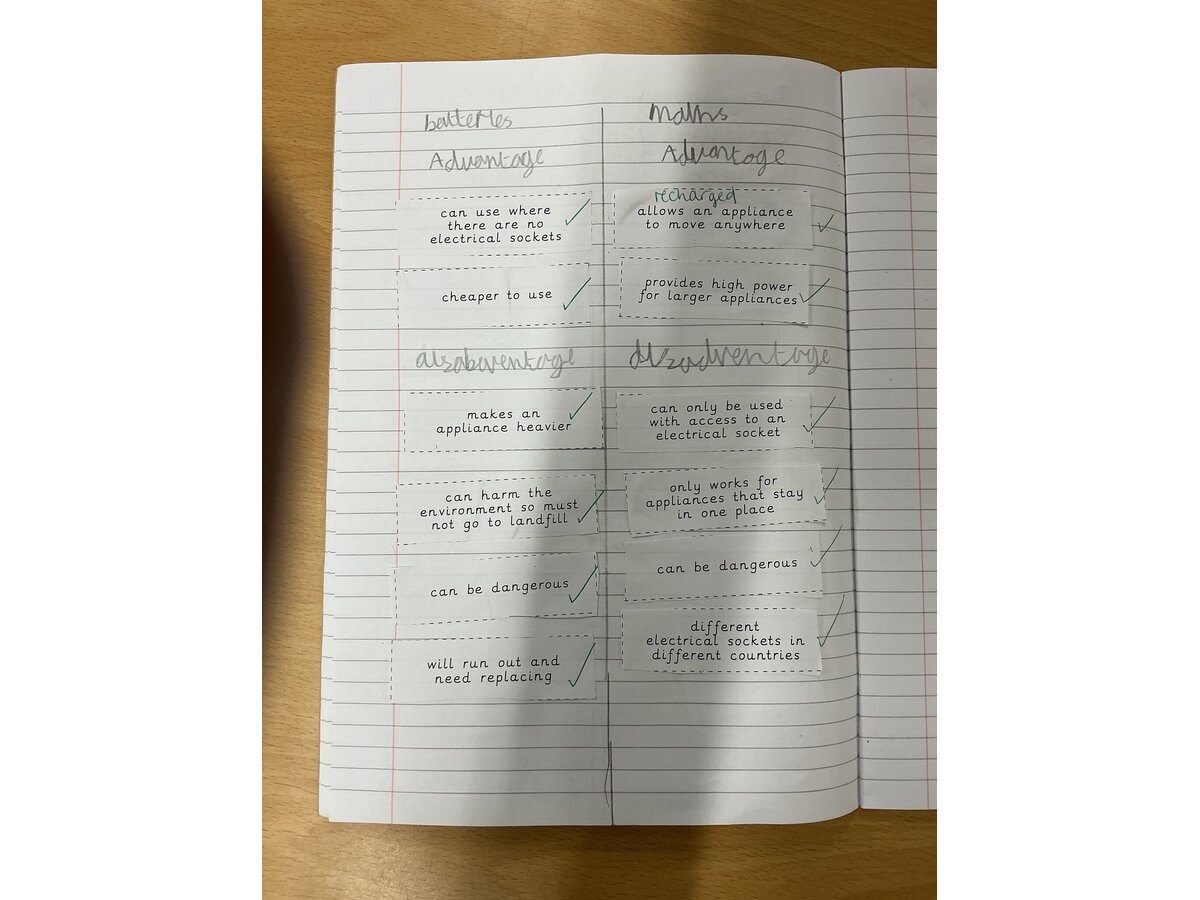 batteries
Advantage
can use where
there are no
electrical sockets
cheaper to use
disabaventage
makes an
appliance heavier
can harm the
environment so must
not go to landfill
can be dangerous
will run out and
need replacing
maths
Advantage
recharged
allows an appliance
to move anywhere
provides high power
for larger appliances
disadventage
can only be used
with access to an
electrical socket
only works for
appliances that stay
in one place
can be dangerous
different
electrical sockets in
different countries